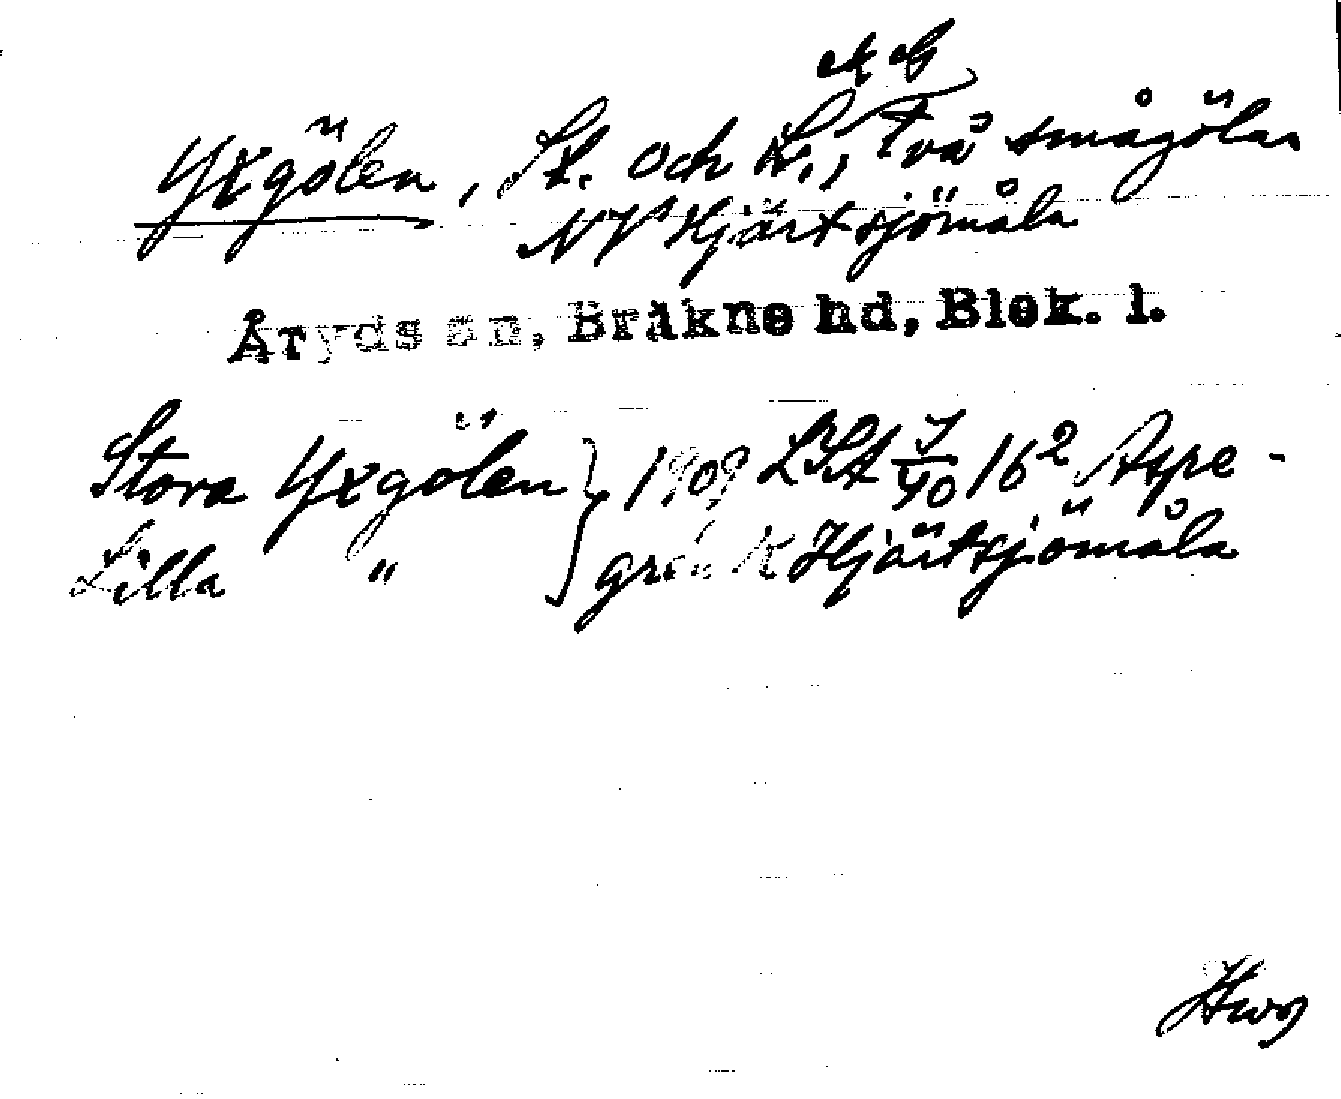 Yxgölen, St. och L., Två smågölar
NV Hjärtsjömåla
Åryds sn, Bräkne hd, Blek. l.
Stora Yxgölen } 1909 LSA 7/40 16² Aspe-
Lilla " } grän K Hjärtsjömåla